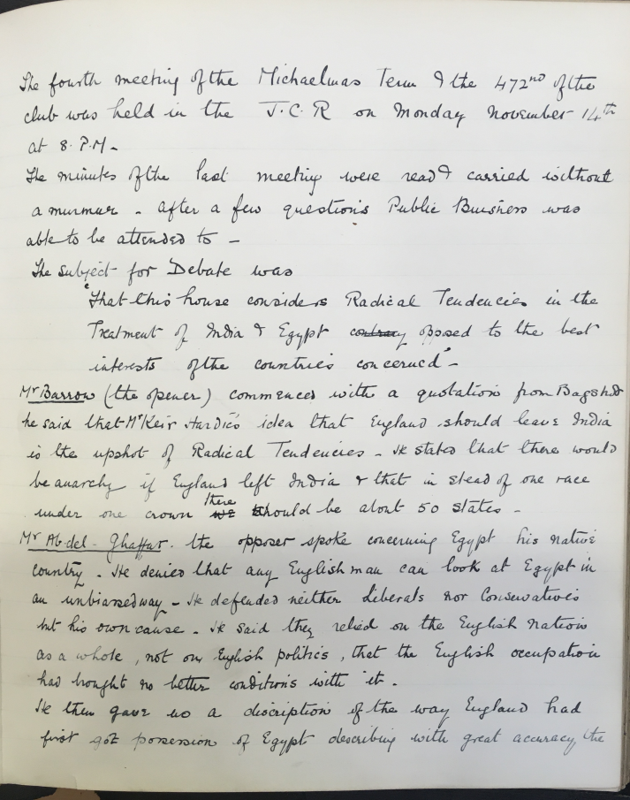 The fourth meeting of the Michaelmas Term & the 472nd of the
club was held in the J.C.R on Monday November 14th
at 8. P.M -
The minutes of the last meeting were read & carried without
a murmur - After a few questions Public Buisness was
able to be attended to -
The subject for Debate was
"That this house considers Radical Tendencies in the
Treatment of India & Egypt contrary opposed to the best
interests of the countries concerned" -
Mr Barrow (the opener) commenced with a quotation from Bagshot
he said that Mr Keir Hardie's idea that England should leave India
is the upshot of Radical Tendencies - He stated that there would
be anarchy if England left India & that in stead of one race
under one crown we there should be about 50 states -
Mr Abdel-Ghaffar. the opposer spoke concerning Egypt his native
country. He denied that any Englishman can look at Egypt in
an unbiassed way - He defended neither Liberals nor Conservatives
but his own cause. He said they relied on the English Nation
as a whole, not on English politics, that the English occupation
had brought no better conditions with it.
He then gave us a discription of the way England had
first got possession of Egypt describing with great accuracy the